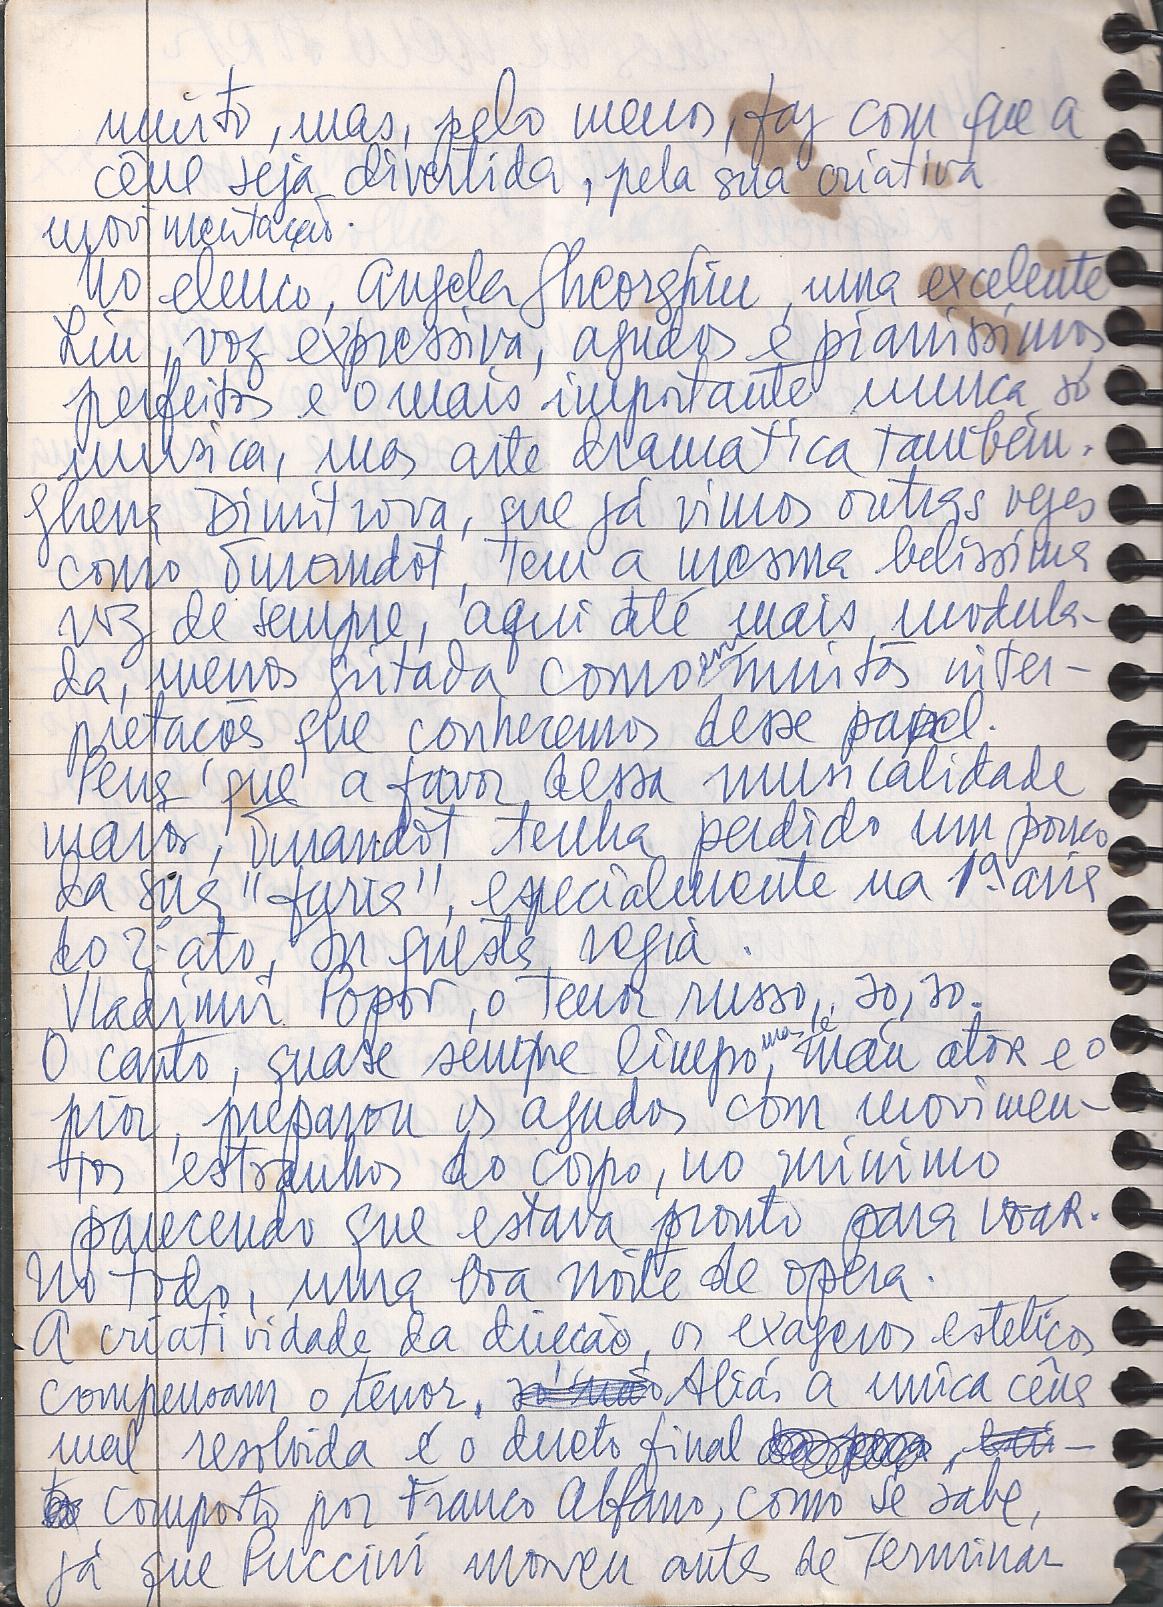 muito, mas, pelo menos, faz com que a
cêne seja divertida, pela sua criativa
movimentação.
No elenco, Angela Gheorghiu, uma excelente
Liu, voz expressiva, agudos e pianissimos
perfeitos e o mais importante nunca só
música, mas arte dramatica também.
Ghena Dimitrova, que já vimos outras vezes
como Turandot, tem a mesma belissima
voz de sempre, aqui até mais modula-
da, menos gritada como em muitas inter-
pretações que conhecemos desse papel.
Pena que a favor dessa musicalidade
maior, Turandot tenha perdido um pouco
da sua "furia", especialmente na 1ª aria
do 2º ato, In questa regia.
Vladimir Popov, o tenor russo, so, so.
O canto, quase sempre limpo, mas te mau ator e o
pior, preparou os agudos com movimen-
tos estranhos do corpo, no minimo
parecendo que estava pronto para voar.
No todo, uma boa noite de opera.
A criatividade da direção, os exageros esteticos
compensam o tenor. Aliás a unica cêna
mal resolvida é o dueto final,
composto por Franco Alfano, como se sabe,
já que Puccini morreu antes de terminar